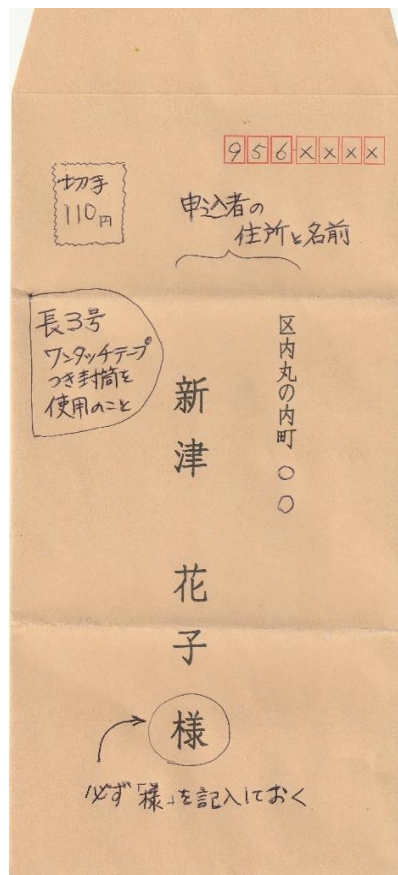 956-××××
切手
110円
申込者の
住所と名前
長3号
ワンタッチテープ
つき封筒を
使用のこと
区内丸の内町 〇〇
新津 花子 様
必ず「様」を記入しておく